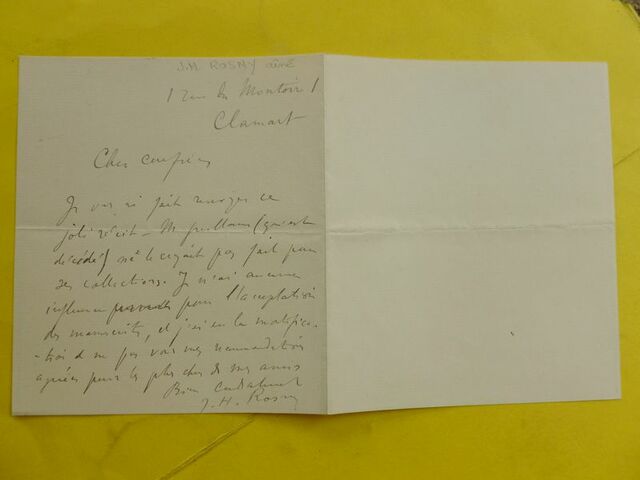 J.H ROSNY aîné
1 rue du Montoir 1
Clamart
Cher confrère
Je vous ai fait renvoyer ce
joli récit - M (qui est
décédé) ne le croyait pas fait pour
ses collections. Je n'ai aucune
influence pour l'acceptation
des manuscrits, et j'ai eu la mortifica-
-tion de ne pas voir mes recommandations
agréées pour les plus chers de mes amis
Bien cordialement
J.-H. Rosny